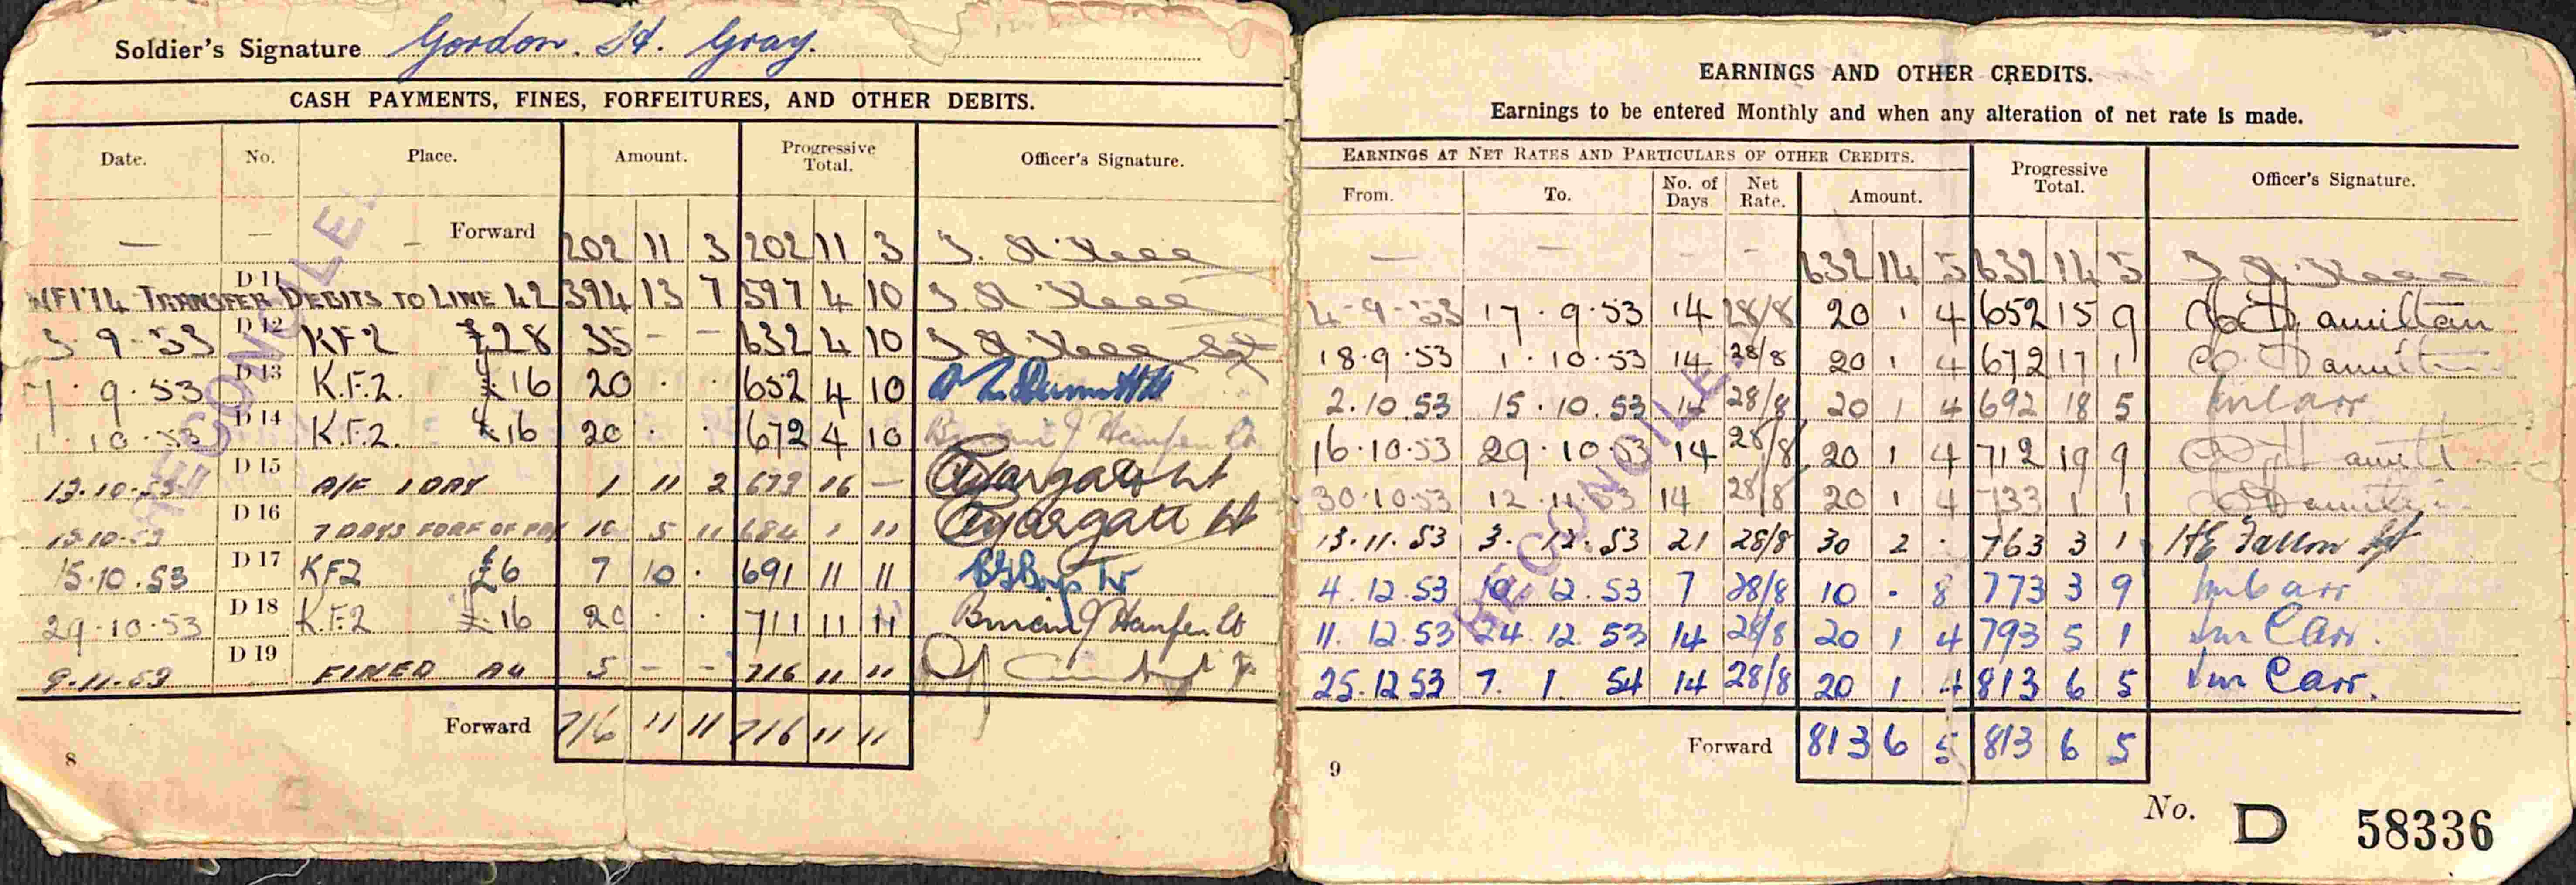 Soldier's Signature Gordon. H. Gray.
CASH PAYMENTS, FINES, FORFEITURES, AND OTHER DEBITS.
Date. No. Place. Amount. Progressive Total. Officer's Signature.
— — — Forward 202 11 3 202 11 3
D 11 TRANSFER DEBITS TO LINE 42 394 13 7 597 4 10
3 9 53 D 12 KF2 £28 35 — — 632 4 10
9.53 D 13 K.F.2. £16 20 . . 652 4 10
1.10.53 D 14 K.F.2. £16 20 . . 672 4 10
13.10.53 D 15 1 DAY 1 11 2 673 16 —
13.10.53 D 16 7 DAYS FORF OF PAY 10 5 11 684 1 11
15.10.53 D 17 KF2 £6 7 10 . 691 11 11
29.10.53 D 18 K.F.2 £16 20 . . 711 11 11
9.11.53 D 19 FINED 5 — — 716 11 11
Forward 716 11 11 716 11 11
8
RECONCILED
EARNINGS AND OTHER CREDITS.
Earnings to be entered Monthly and when any alteration of net rate is made.
EARNINGS AT NET RATES AND PARTICULARS OF OTHER CREDITS. Progressive Total. Officer's Signature.
From. To. No. of Days Net Rate. Amount.
— — — — 632 14 5 632 14 5
4-9-53 17.9.53 14 28/8 20 1 4 652 15 9 Hamilton
18.9.53 1.10.53 14 28/8 20 1 4 672 17 1 Hamilton
2.10.53 15.10.53 14 28/8 20 1 4 692 18 5 Carr
16.10.53 29.10.53 14 28/8 20 1 4 712 19 9 Hamilton
30.10.53 12.11.53 14 28/8 20 1 4 733 1 1 Hamilton
13.11.53 3.12.53 21 28/8 30 2 . 763 3 1 Fallon
4.12.53 10.12.53 7 28/8 10 - 8 773 3 9 Carr
11.12.53 24.12.53 14 28/8 20 1 4 793 5 1 Carr.
25.12.53 7.1.54 14 28/8 20 1 4 813 6 5 Carr.
Forward 813 6 5 813 6 5
9
RECONCILED
No. D 58336